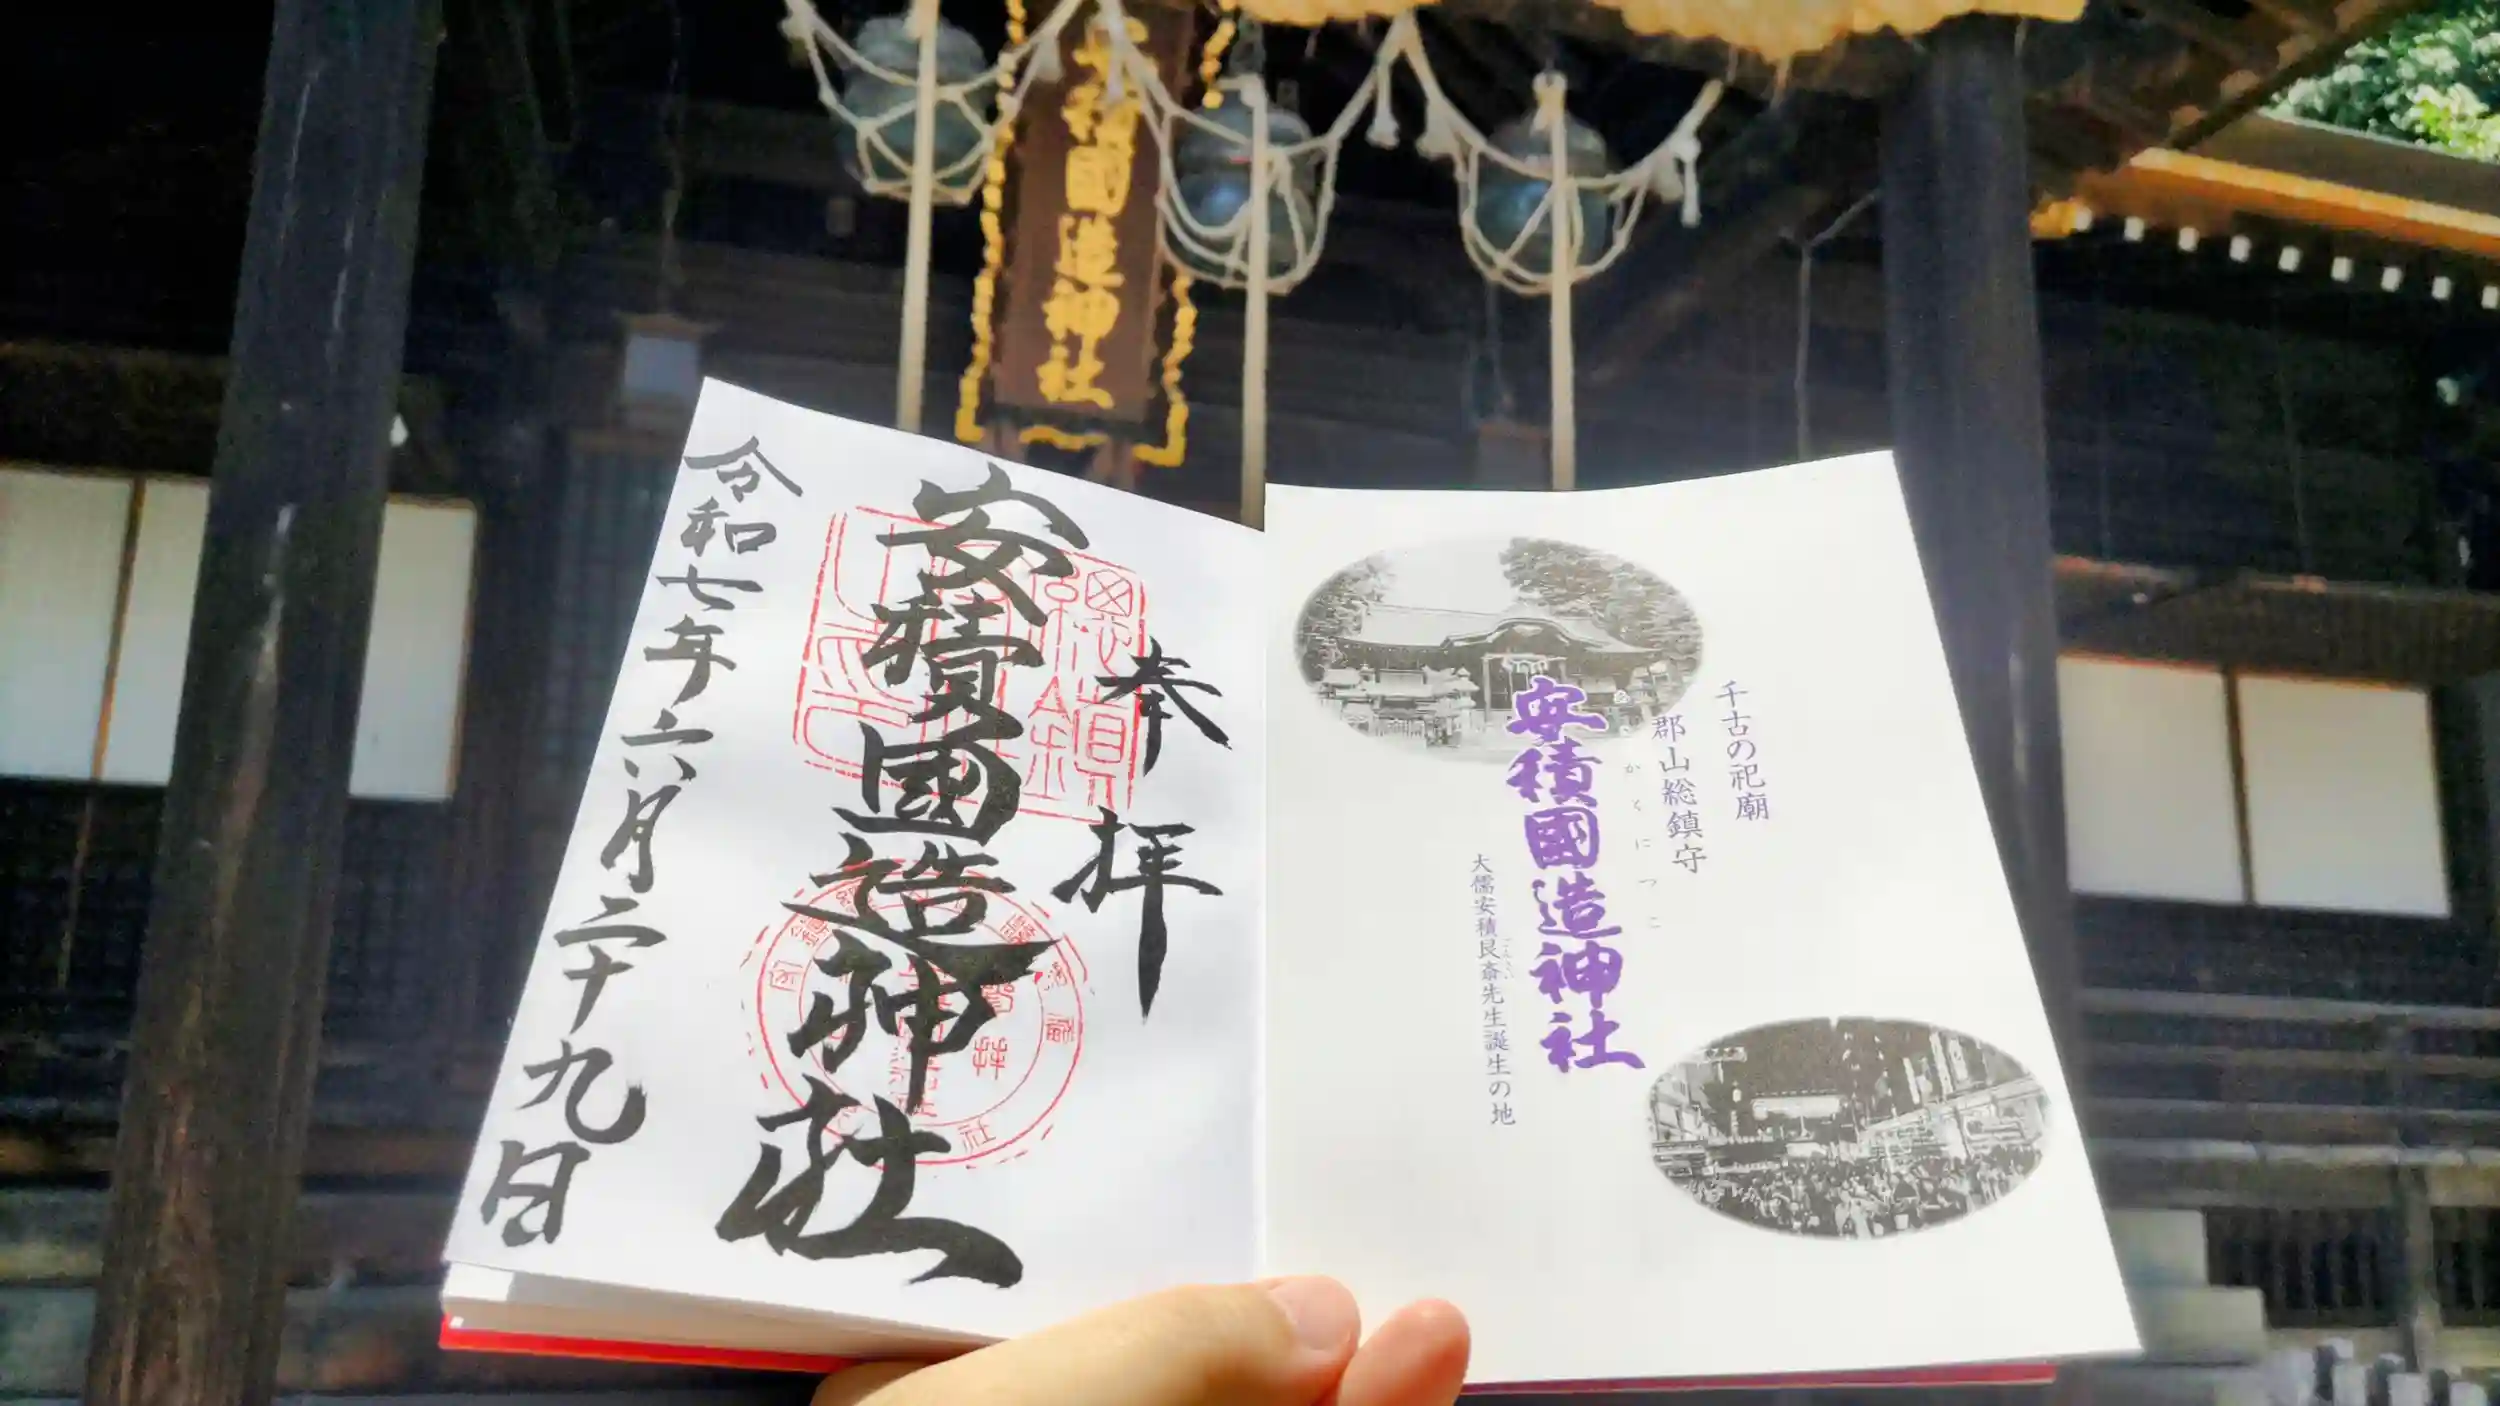 安積國造神社
奉拝
安積國造神社
令和七年六月二十九日
千古の祀廟
郡山総鎮守
あさかくにつこ
安積國造神社
大儒安積艮斎先生誕生の地
ごんさい